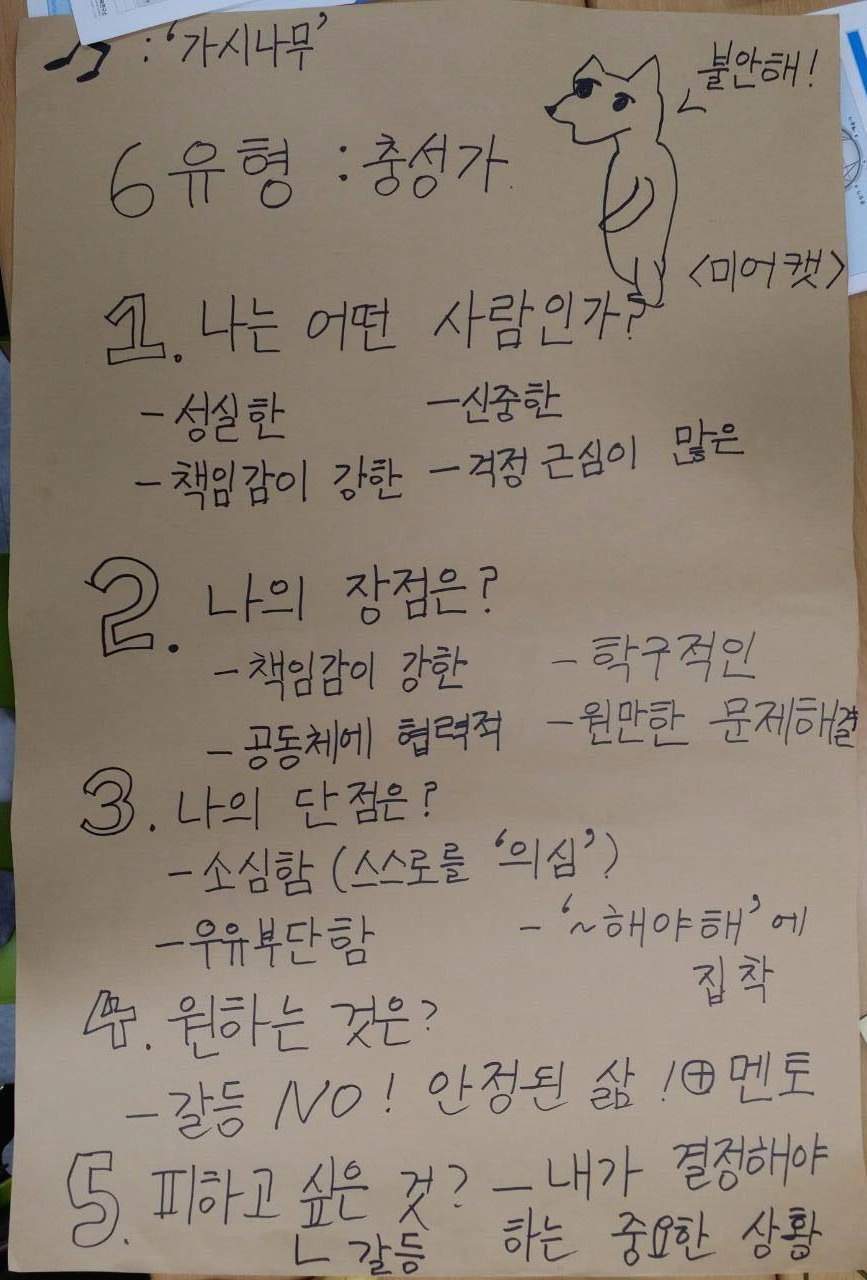 ♫ : '가시나무'
불안해!
6유형 : 충성가
<미어캣>
1. 나는 어떤 사람인가?
- 성실한 - 신중한
- 책임감이 강한 - 걱정 근심이 많은
2. 나의 장점은?
- 책임감이 강한 - 학구적인
- 공동체에 협력적 - 원만한 문제해결
3. 나의 단점은?
- 소심함 (스스로를 '의심')
- 우유부단함 - '~해야해'에
집착
4. 원하는 것은?
- 갈등 NO! 안정된 삶! ⊕ 멘토
5. 피하고 싶은 것? - 내가 결정해야
ㄴ 갈등 하는 중요한 상황